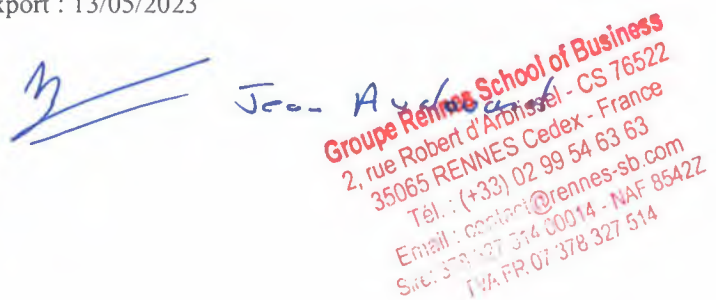 xport : 13/05/2023
Jean
Groupe Rennes School of Business
2, rue Robert d'Arbrissel - CS 76522
35065 RENNES Cedex - France
Tél. : (+33) 02 99 54 63 63
Email : contact@rennes-sb.com
327 514 00014 - NAF 8542Z
TVA FR 07 378 327 514